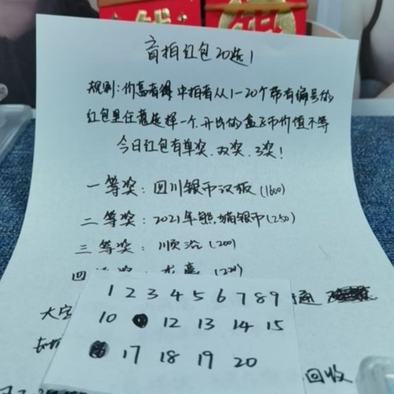 盲拍红包20选1
规则:价高者得 中拍者从1-20个带有编号的
红包里任意选择一个,开出的盒子币价值不等
今日红包有单奖,双奖,3奖!
一等奖:四川银币汉版(1600)
二等奖:2021年熊猫银币(250)
三等奖:顺治(200)
四
大字 通
1 2 3 4 5 6 7 8 9
10 12 13 14 15
17 18 19 20
回收